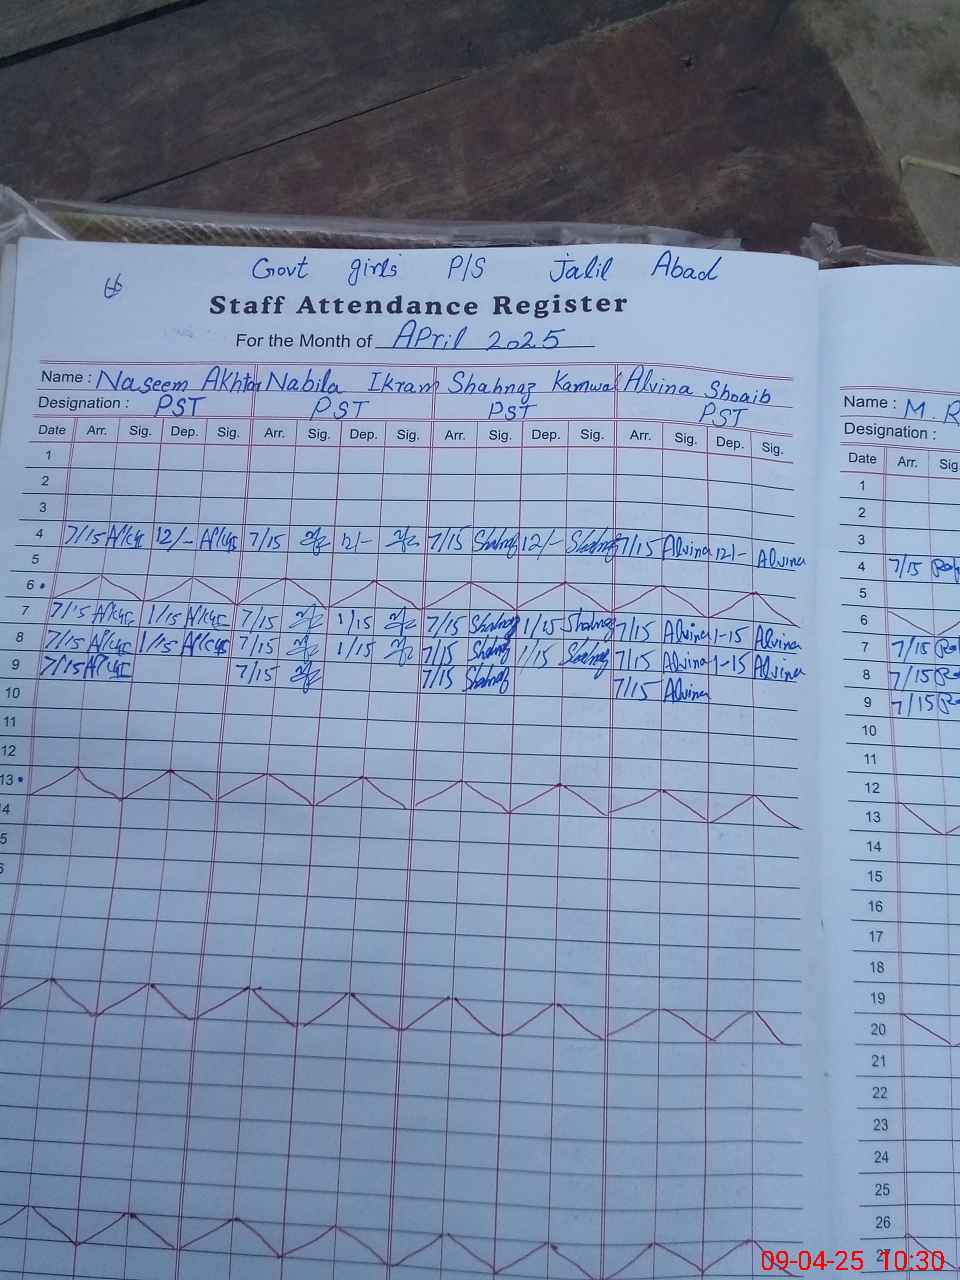 Govt girls P/S Jalil Abad
Staff Attendance Register
For the Month of April 2025
Name : Naseem Akhtar Nabila Ikram Shahnaz Kamwal Alvina Shoaib
Designation : PST PST PST PST
Date Arr. Sig. Dep. Sig. Arr. Sig. Dep. Sig. Arr. Sig. Dep. Sig. Arr. Sig. Dep. Sig.
1
2
3
4 7/15 12/- 7/15 12/- 7/15 Shahnaz 12/- Shahnaz 7/15 Alvina 12/- Alvina
5
6
7 7/15 1/15 7/15 1/15 7/15 Shahnaz 1/15 Shahnaz 7/15 Alvina 1-15 Alvina
8 7/15 1/15 7/15 1/15 7/15 Shahnaz 1/15 Shahnaz 7/15 Alvina 1-15 Alvina
9 7/15 7/15 7/15 Shahnaz 7/15 Alvina
10
11
12
13
4
5
Name : M. R
Designation :
Date Arr. Sig
1
2
3
4 7/15
5
6
7 7/15
8 7/15
9 7/15
10
11
12
13
14
15
16
17
18
19
20
21
22
23
24
25
26
09-04-25 10:30